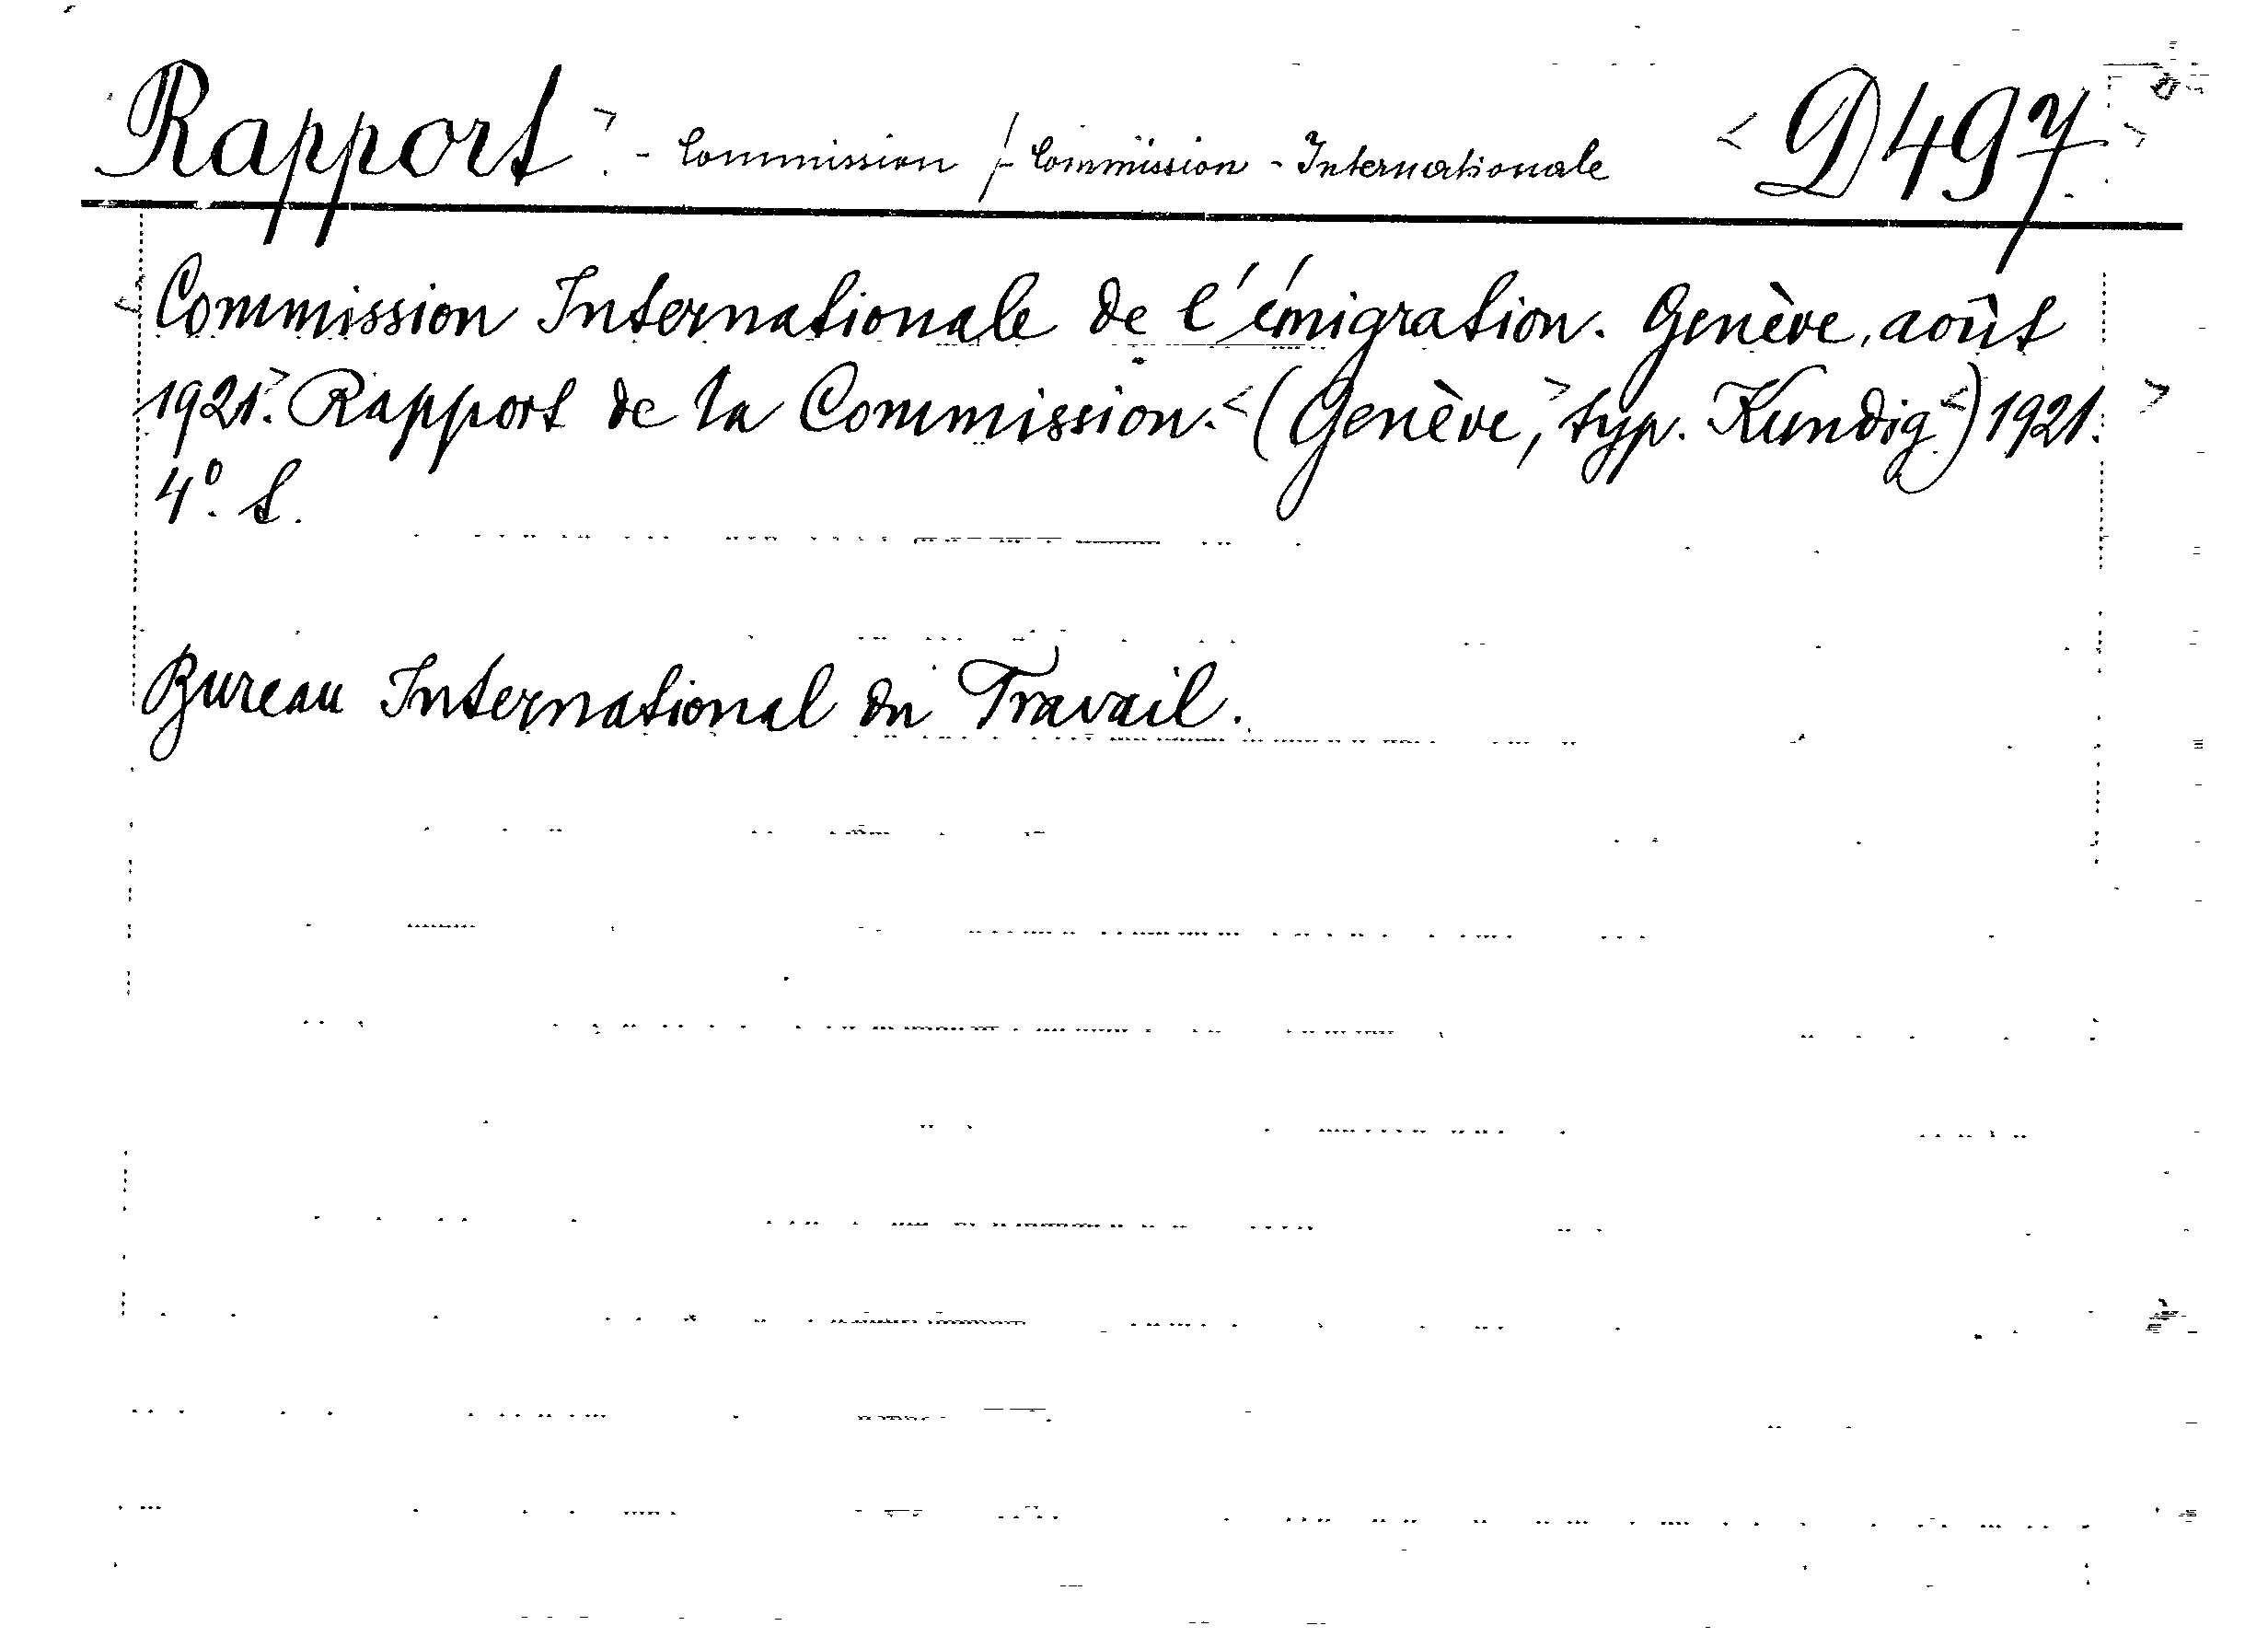 Rapport - Commission / - Commission - Internationale D497
Commission Internationale de l'émigration. Genève, août
1921. Rapport de la Commission. (Genève, typ. Kundig) 1921.
4°. S.
Bureau International du Travail.